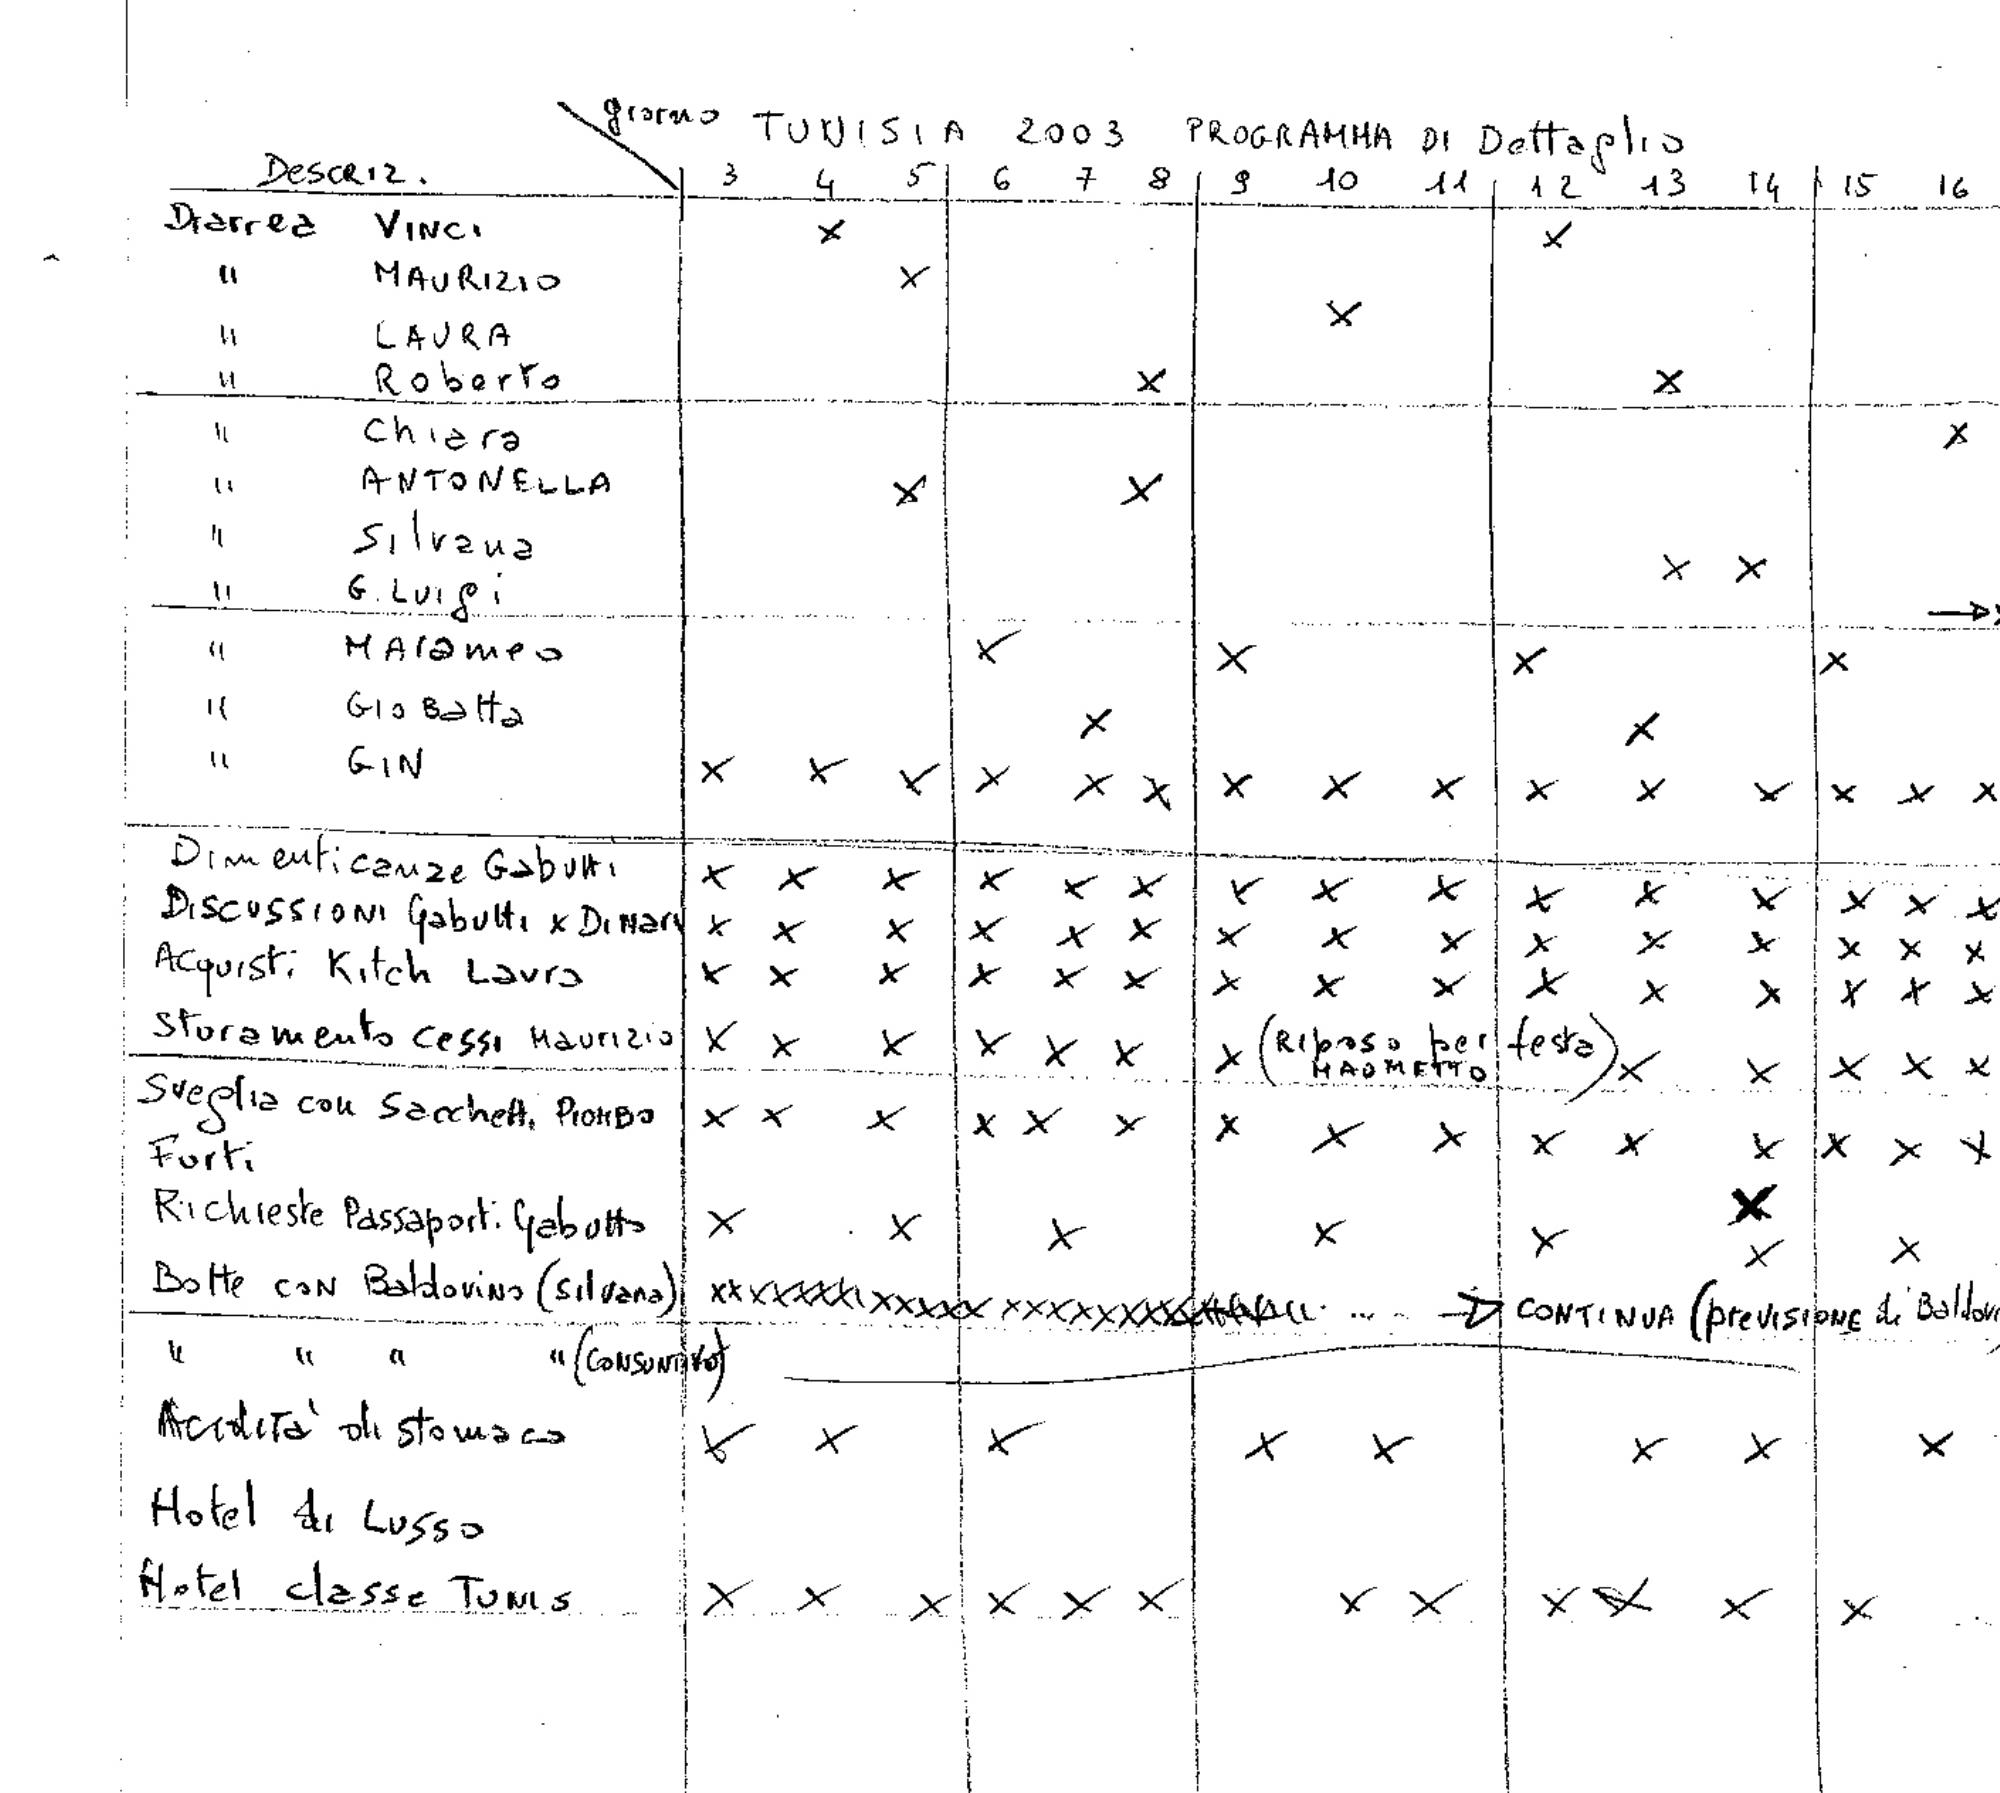 giorno TUNISIA 2003 PROGRAMMA DI Dettaglio
DESCRIZ. 3 4 5 6 7 8 9 10 11 12 13 14 15 16
Diarrea VINCI x x
" MAURIZIO x
" LAURA x
" Roberto x x
" Chiara x
" ANTONELLA x x
" Silvana x x
" G. Luigi →x
" MARAMEO x x x x
" GIO Batta x x
" GIN x x x x x x x x x x x x x x x
Dimenticanze Gabutti x x x x x x x x x x x x x x x
DISCUSSIONI Gabutti x DiMARI x x x x x x x x x x x x x x x
Acquisti Kitch Laura x x x x x x x x x x x x x x x
Sturamento cessi Maurizio x x x x x x x (Riposo per festa MAOMETTO) x x x x x
Sveglia con Sacchetti PIOMBO x x x x x x x x x x x x x x x
Furti x
Richieste Passaporti Gabutto x x x x x x x
Botte con Baldovino (Silvana) xxxxxxxxxxxxxxxxxxxxxxxx ..... → CONTINUA (previsione di Baldov
" " " " (CONSUNTIVO)
Acidità di stomaco x x x x x x x x
Hotel di Lusso
Hotel classe TUNIS x x x x x x x x x x x x